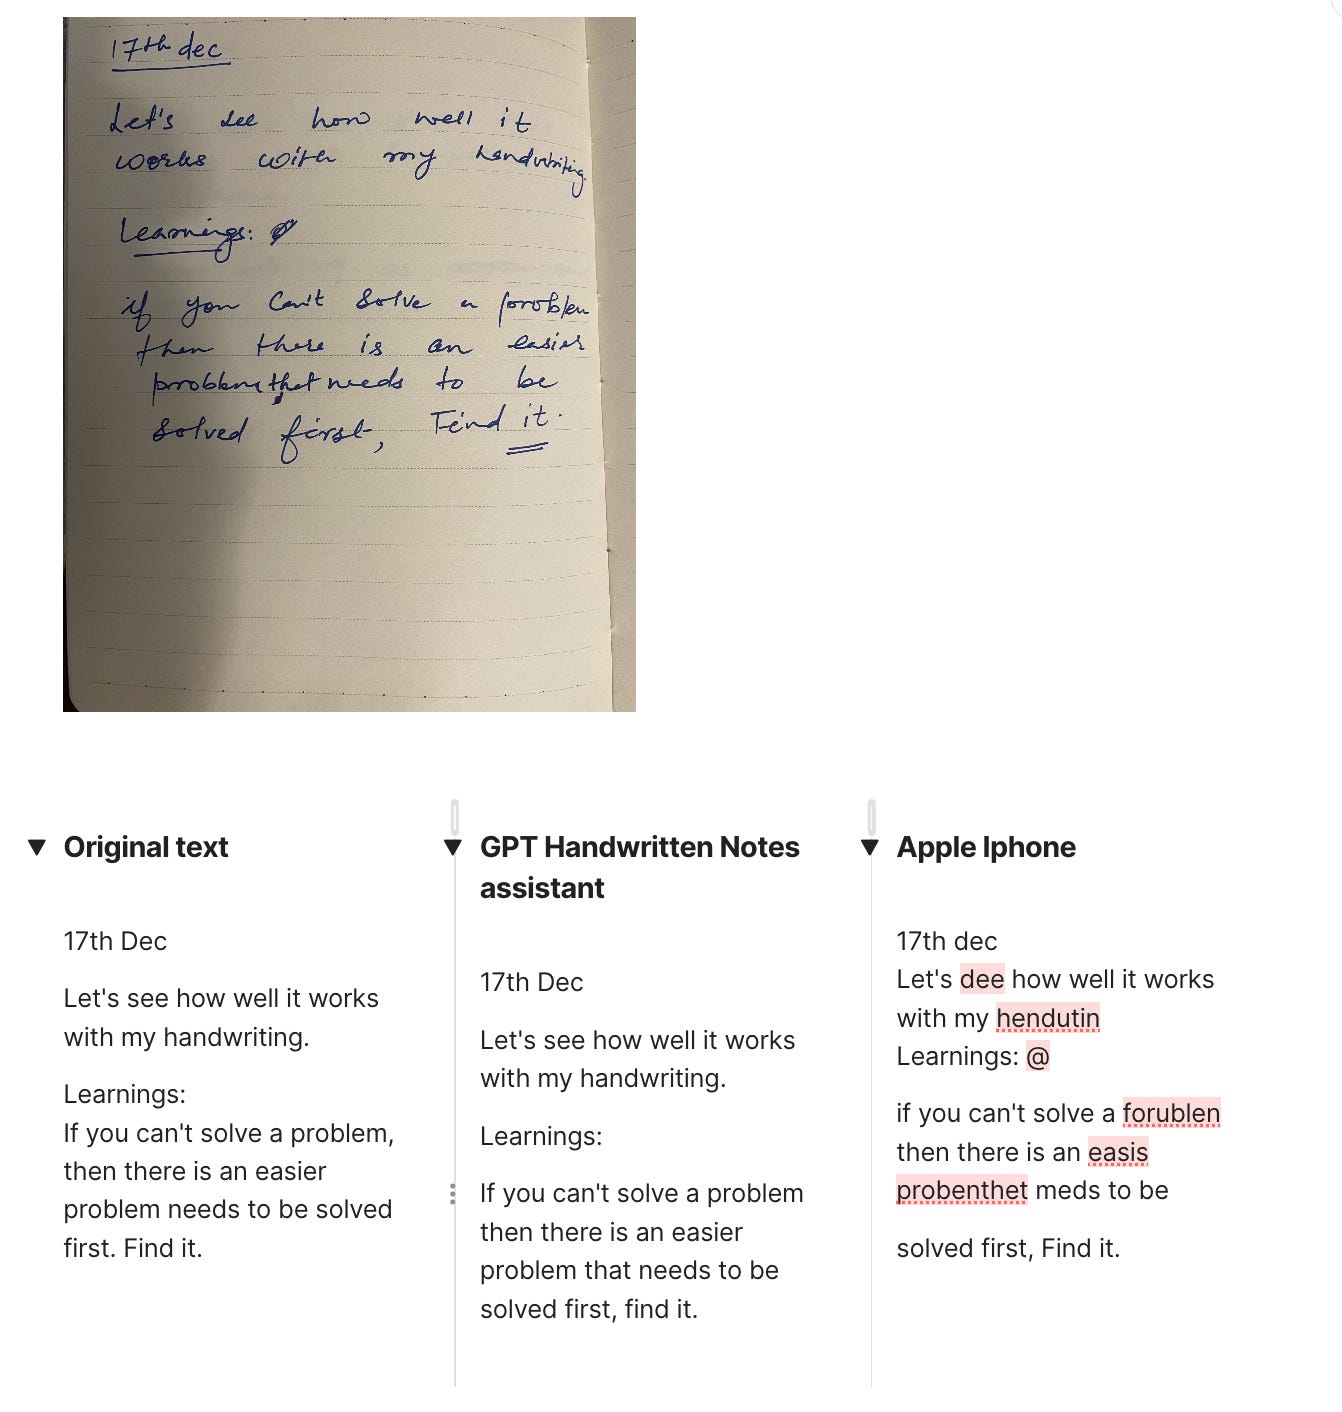 17th dec
Let's see how well it
works with my handwriting.
Learnings:
if you can't solve a problem
then there is an easier
problem that needs to be
solved first, Find it.
Original text
17th Dec
Let's see how well it works
with my handwriting.
Learnings:
If you can't solve a problem,
then there is an easier
problem needs to be solved
first. Find it.
GPT Handwritten Notes
assistant
17th Dec
Let's see how well it works
with my handwriting.
Learnings:
If you can't solve a problem
then there is an easier
problem that needs to be
solved first, find it.
Apple Iphone
17th dec
Let's dee how well it works
with my hendutin
Learnings: @
if you can't solve a forublen
then there is an easis
probenthet meds to be
solved first, Find it.